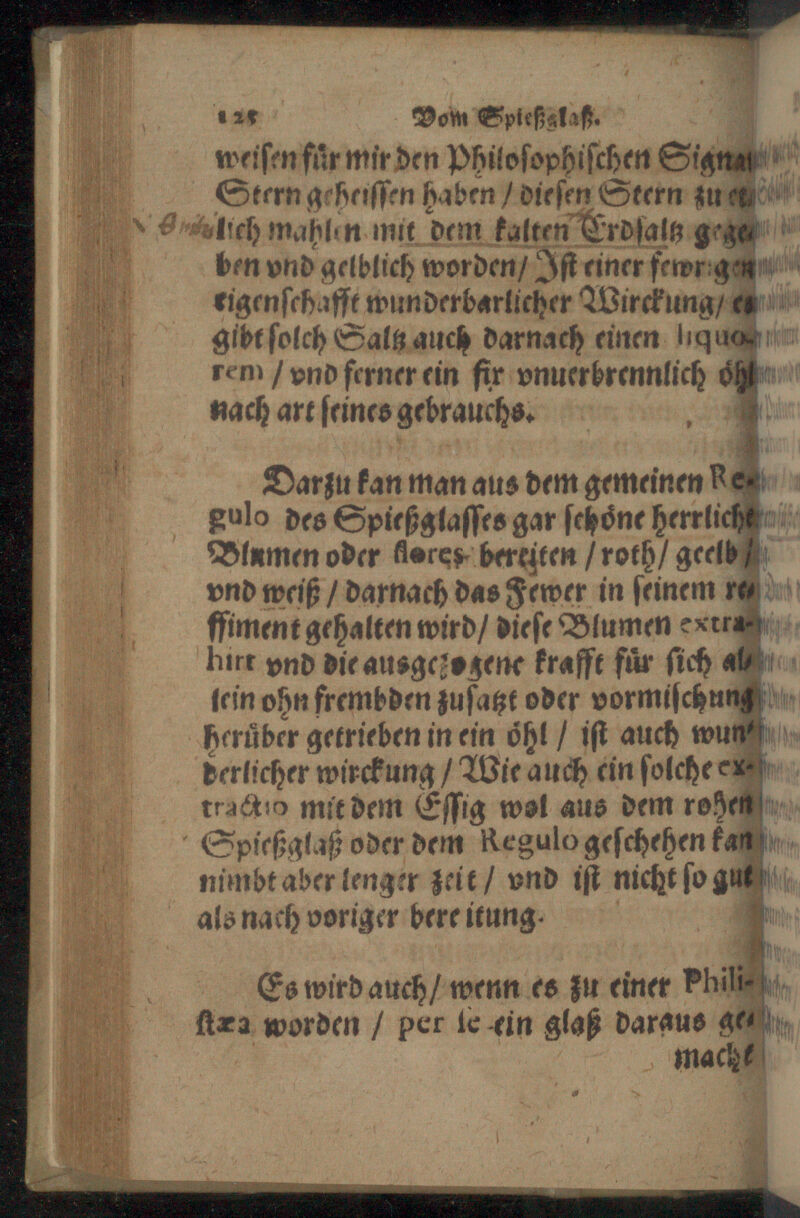 128 Vom Spießglaß.
weiſen fuͤr mir den Philoſophiſchen Signat
Stern geheiſſen haben / dieſen Stern zu et⸗
lich mahlen mit dem kalten Erdſaltz gege⸗
ben vnd gelblich worden / Iſt einer fewrigen
eigenſchafft wunderbarlicher Wirckung / es
gibt ſolch Saltz auch darnach einen liquo⸗
rem / vnd ferner ein fix vnuerbrennlich oͤhl
nach art ſeines gebrauchs.
Darzu kan man aus dem gemeinen Re⸗
gulo des Spießglaſſes gar ſchoͤne herrliche
Blumen oder flores bereiten / roth / geelb /
vnd weiß / darnach das Fewer in ſeinem re⸗
ffiment gehalten wird / dieſe Blumen extra⸗
hirt vnd die ausgezogene krafft fuͤr ſich al⸗
lein ohn frembden zuſatzt oder vormiſchung
heruͤber getrieben in ein oͤhl / iſt auch wun⸗
derlicher wirckung / Wie auch ein ſolche ex⸗
tractio mit dem Eſſig wol aus dem rohen
Spießglaß oder dem Regulo geſchehen kan
nimbt aber lenger zeit / vnd iſt nicht ſo gut
als nach voriger bereitung.
Es wird auch / wenn es zu einer Phili⸗
ſtæa worden / per ſe ein glaß daraus ge⸗
macht